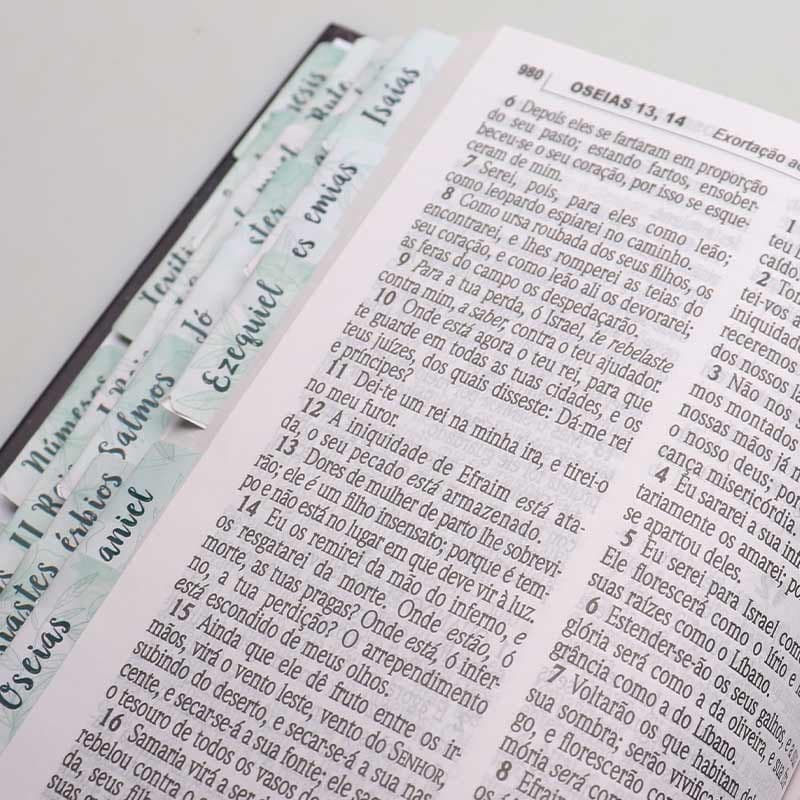 980 OSEIAS 13, 14 Exortação
6 Depois eles se fartaram em proporção
do seu pasto; estando fartos, ensober-
beceu-se o seu coração, por isso se esque-
ceram de mim.
7 Serei, pois, para eles como leão;
como leopardo espiarei no caminho.
8 Como ursa roubada dos seus filhos, os
encontrarei, e lhes romperei as teias do
seu coração, e como leão ali os devorarei;
as feras do campo os despedaçarão.
9 Para a tua perda, ó Israel, te rebelaste
contra mim, a saber, contra o teu ajudador.
10 Onde está agora o teu rei, para que
te guarde em todas as tuas cidades, e os
teus juízes, dos quais disseste: Dá-me rei
e príncipes?
11 Dei-te um rei na minha ira, e tirei-o
no meu furor.
12 A iniquidade de Efraim está ata-
da, o seu pecado está armazenado.
13 Dores de mulher de parto lhe sobrevi-
rão; ele é um filho insensato; porque é tem-
po e não está no lugar em que deve vir à luz.
14 Eu os remirei da mão do inferno, e
os resgatarei da morte. Onde estão, ó
morte, as tuas pragas? Onde está, ó infer-
no, a tua perdição? O arrependimento
está escondido de meus olhos.
15 Ainda que ele dê fruto entre os ir-
mãos, virá o vento leste, vento do SENHOR,
subindo do deserto, e secar-se-á a sua nas-
cente, e secar-se-á a sua fonte; ele
o tesouro de todos os vasos
16 Samaria virá a ser
rebelou contra o
da, seus filhos
suas
1
teu
caído.
2
tei-vos a
iniquidade
receremos
dos nossos
3 Não nos
mos montados
nossas mãos já
o nosso deus; por
cança misericórdia.
4 Eu sararei a sua
tariamente os amarei;
se apartou deles.
5 Eu serei para Israel
Ele florescerá como o lírio e
suas raízes como o Líbano.
6 Estender-se-ão os seus galhos,
glória será como a da oliveira, e
grância como a do Líbano.
7 Voltarão os que habitam
sua sombra, serão
go, e florescerão
mória será
8 Efraim
Isaías
Rute
ester
es emias
Jó
Ezequiel
Números
Salmos
II R
érbios
aniel
Oseias